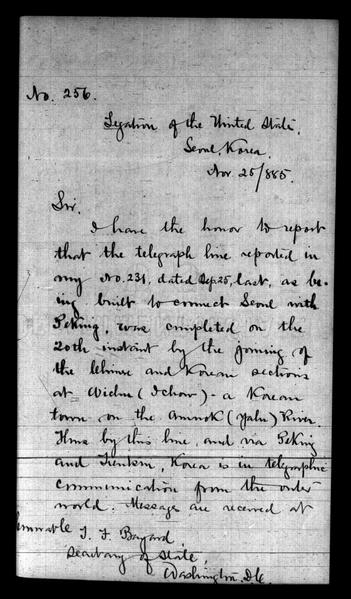 No. 256.
Legation of the United States,
Seoul, Korea,
Nov. 25/885.
Sir.
I have the honor to report
that the telegraph line reported in
my No. 231, dated Sep. 25, last, as be-
ing built to connect Seoul with
Peking, was completed on the
20th instant by the joining of
the Chinese and Korean sections
at Wichu (Ichow) - a Korean
town on the Amnok (Yalu) River.
Thus by this line, and via Peking
and Tientsin, Korea is in telegraphic
communication from the outer
world. Messages are received at
Honorable T. F. Bayard,
Secretary of State,
Washington, D.C.